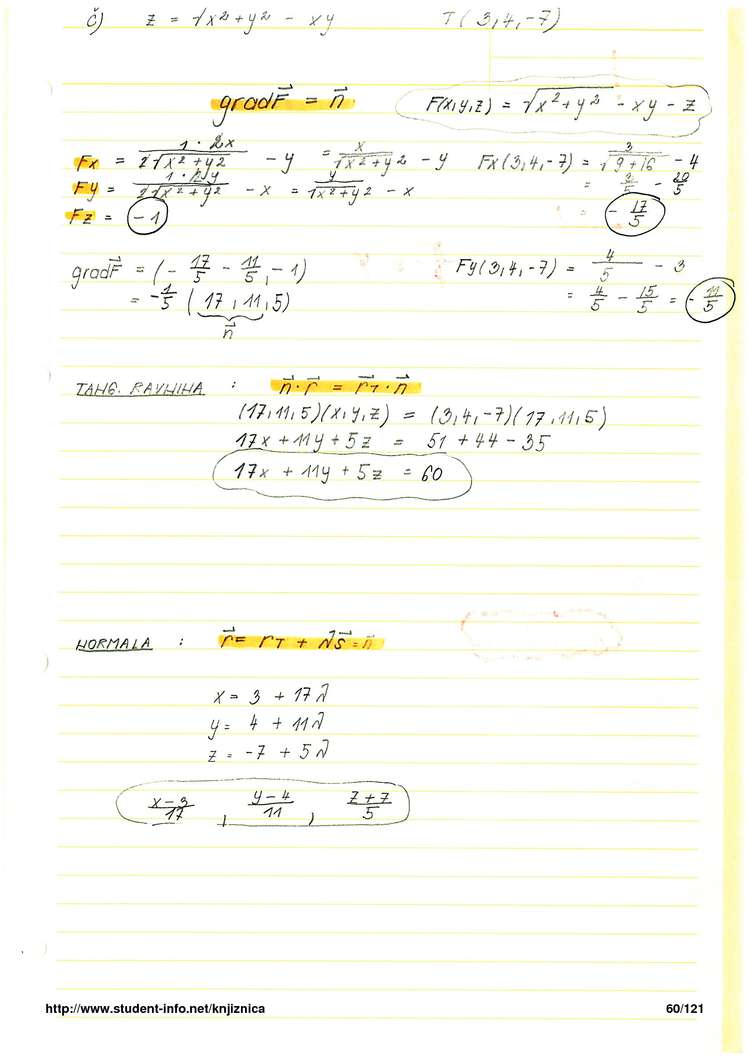 č) z = √x²+y² - xy T(3,4,-7)
grad F⃗ = n⃗. F(x,y,z) = √x²+y² - xy - z
Fx = 1·2x/2√x²+y² - y = x/√x²+y² - y Fx(3,4,-7) = 3/√9+16 - 4
Fy = 1·2y/2√x²+y² - x = y/√x²+y² - x = 3/5 - 20/5
Fz = -1 = -17/5
grad F⃗ = (-17/5 - 11/5, -1) Fy(3,4,-7) = 4/5 - 3
= -1/5 (17, 11, 5) = 4/5 - 15/5 = -11/5
n⃗
TANG. RAVNINA : n⃗·r⃗ = r⃗T·n⃗
(17,11,5)(x,y,z) = (3,4,-7)(17,11,5)
17x + 11y + 5z = 51 + 44 - 35
17x + 11y + 5z = 60
NORMALA : r⃗ = rT + λs⃗ = n⃗
x = 3 + 17λ
y = 4 + 11λ
z = -7 + 5λ
x-3/17 , y-4/11 , z+7/5
http://www.student-info.net/knjiznica 60/121